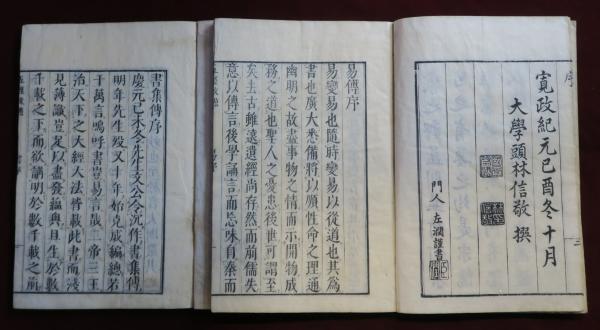 序
三
寛政紀元己酉冬十月
大學頭林信敬 撰
門人 左潤謹書
易傳序
易變易也隨時變易以從道也其爲
書也廣大悉備將以順性命之理通
幽明之故盡事物之情而示開物成
務之道也聖人之憂患後世可謂至
矣去古雖遠遺經尚存然而前儒失
意以傳言後學誦言而忘味自秦而
書集傳序
慶元己未冬先生文公令沉作書集傳
明年先生歿又十年始克成編總若
干萬言嗚呼書豈易言哉二帝三王
治天下之大經大法皆載此書而淺
見薄識豈足以盡發蘊奧且生於數
千載之下而欲講明於數千載之前